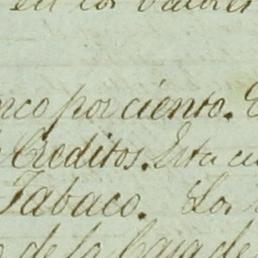 en los valores
nco por ciento.
Creditos. Esta cu
Tabaco. Los
de la Caja de